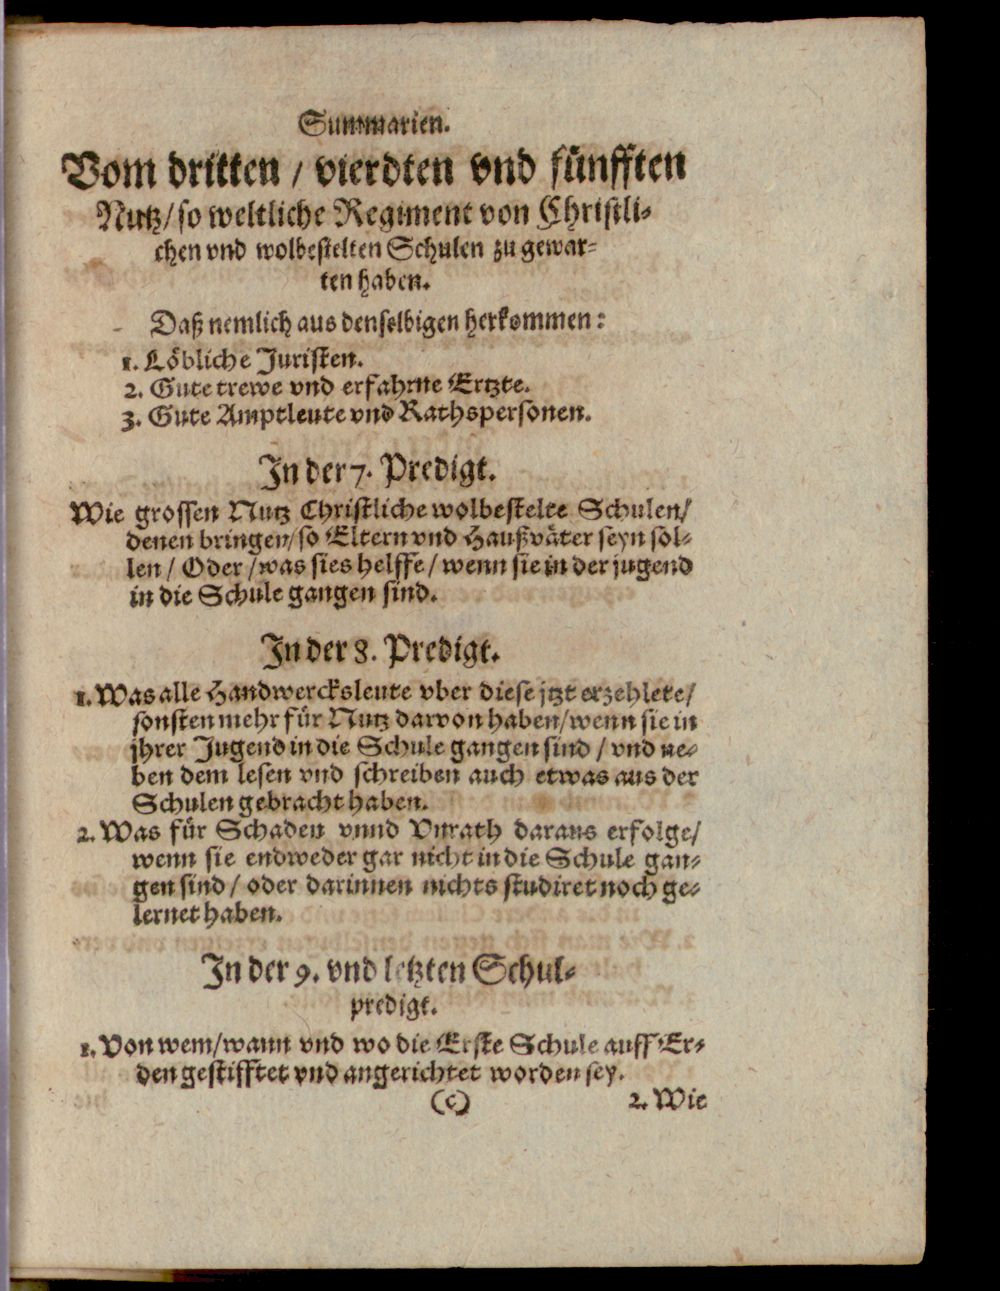 Summarien.
Vom dritten / vierdten vnd fünfften
Nutz / so weltliche Regiment von Christli-
chen vnd wolbestelten Schulen zu gewar-
ten haben.
Daß nemlich aus denselbigen herkommen:
1. Löbliche Juristen.
2. Gute trewe vnd erfahrne Ertzte.
3. Gute Amptleute vnd Rathspersonen.
In der 7. Predigt.
Wie grossen Nutz Christliche wolbestelte Schulen/
denen bringen/ so Eltern vnd Haußväter seyn sol-
len / Oder / was sies helffe / wenn sie in der jugend
in die Schule gangen sind.
In der 8. Predigt.
1. Was alle Handwercksleute vber diese jtzt erzehlete/
sonsten mehr für Nutz darvon haben/wenn sie in
jhrer Jugend in die Schule gangen sind / vnd ne-
ben dem lesen vnd schreiben auch etwas aus der
Schulen gebracht haben.
2. Was für Schaden vnnd Vnrath daraus erfolge/
wenn sie endweder gar nicht in die Schule gan-
gen sind / oder darinnen nichts studiret noch ge-
lernet haben.
In der 9. vnd letzten Schul-
predigt.
1. Von wem/wann vnd wo die Erste Schule auff Er-
den gestifftet vnd angerichtet worden sey.
(c) 2. Wie